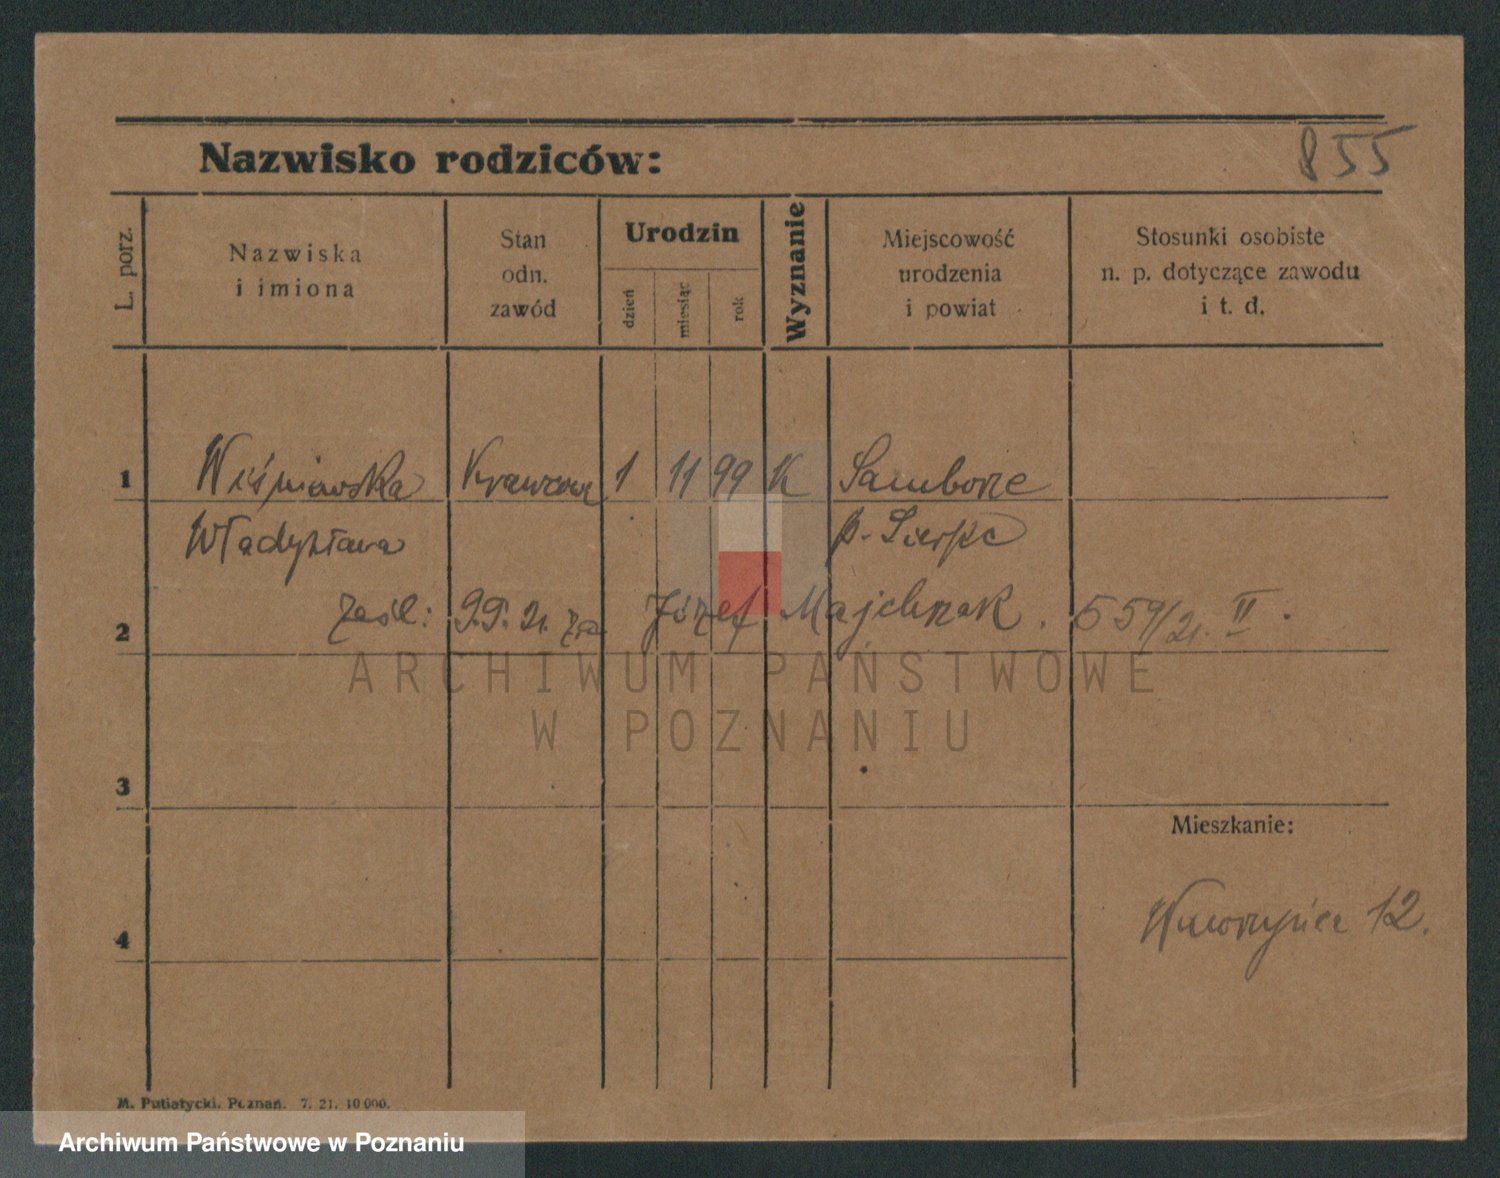 855
Nazwisko rodziców:
L. porz.
Nazwiska
i imiona
Stan
odn.
zawód
Urodzin
dzień
miesiąc
rok
Wyznanie
Miejscowość
urodzenia
i powiat
Stosunki osobiste
n. p. dotyczące zawodu
i t. d.
1 Wiśniewska Krawcowa 1 11 99 K Samborze
Władysława p. Sierpc
2 zaśl: 9.9. 21. za Józef Majchrzak. 559/21. II.
ARCHIWUM PAŃSTWOWE
W POZNANIU
3
Mieszkanie:
12.
4
M. Putiatycki, Poznań. 7. 21. 10 000.
Archiwum Państwowe w Poznaniu